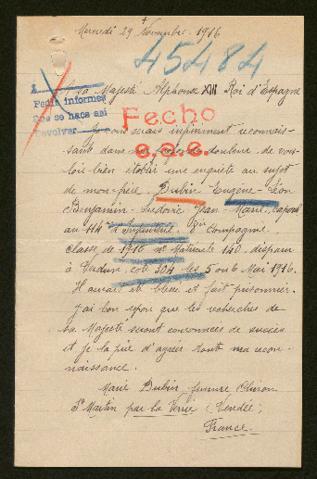 Mercredi 29 Novembre 1916
45484
A sa Majesté Alphonse XIII Roi d'Espagne
Pedir informes
que se haga así
devolver
Fecho
e.s.e.
Je vous serais infiniment reconnais-
sante dans ma douleur, de vou-
loir bien établir une enquête au sujet
de mon frère, Bubin Eugène-Léon
Benjamin-Ludovic Jean Marie, caporal
au 114e d'Infanterie, Compagnie,
classe de 1916 Matricule 140, disparu
à Verdun, cote 304 les 5 ou 6 Mai 1916.
Il aurait été blessé et fait prisonnier.
J'ai bon espoir que les recherches de
sa Majesté seront couronnées de succès
et je la prie d'agréer toute ma recon-
naissance.
Marie Bubin femme
St Martin par la (Vendée)
France.